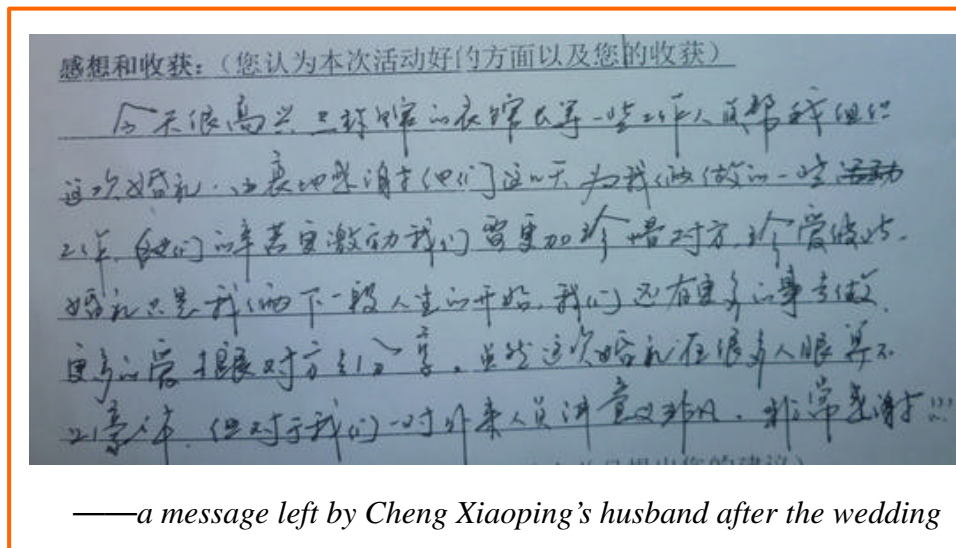 感想和收获：（您认为本次活动好的方面以及您的收获）
今天很高兴 等一些工作人员帮我组织
这次婚礼.由衷地感谢 他们这 天为我俩做的一些活动
工作,他们的辛苦更激动我们要更加珍惜对方,珍爱彼此.
婚礼只是我俩下一段人生的开始,我们还有更多的事去做
更多的爱 跟对方去分享。虽然这次婚礼在很多人眼 不
,但对于我们一对外来人员讲意义非凡.非常感谢!!!
——a message left by Cheng Xiaoping’s husband after the wedding